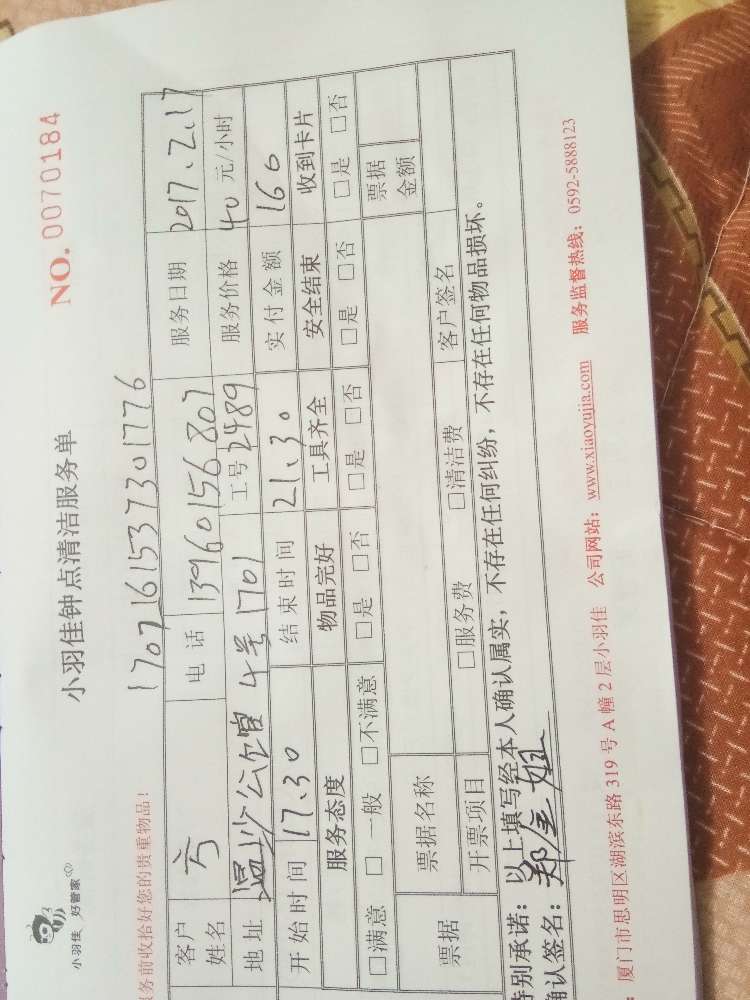 小羽佳 好管家
小羽佳钟点清洁服务单
NO. 0070184
服务前收拾好您的贵重物品！
1702161537301776
客户姓名 方 电话 13960156807 服务日期 2017.2.17
地址 4号1701 工号 2489 服务价格 40 元/小时
开始时间 17.30 结束时间 21.30 实付金额 160
服务态度 物品完好 工具齐全 安全结束 收到卡片
□满意 □一般 □不满意 □是 □否 □是 □否 □是 □否 □是 □否
票据 票据名称 票据金额
开票项目 □服务费 □清洁费 客户签名
特别承诺：以上填写经本人确认属实，不存在任何纠纷，不存在任何物品损坏。
确认签名：郑
厦门市思明区湖滨东路 319 号 A 幢 2 层小羽佳 公司网站：www.xiaoyujia.com 服务监督热线：0592-5888123